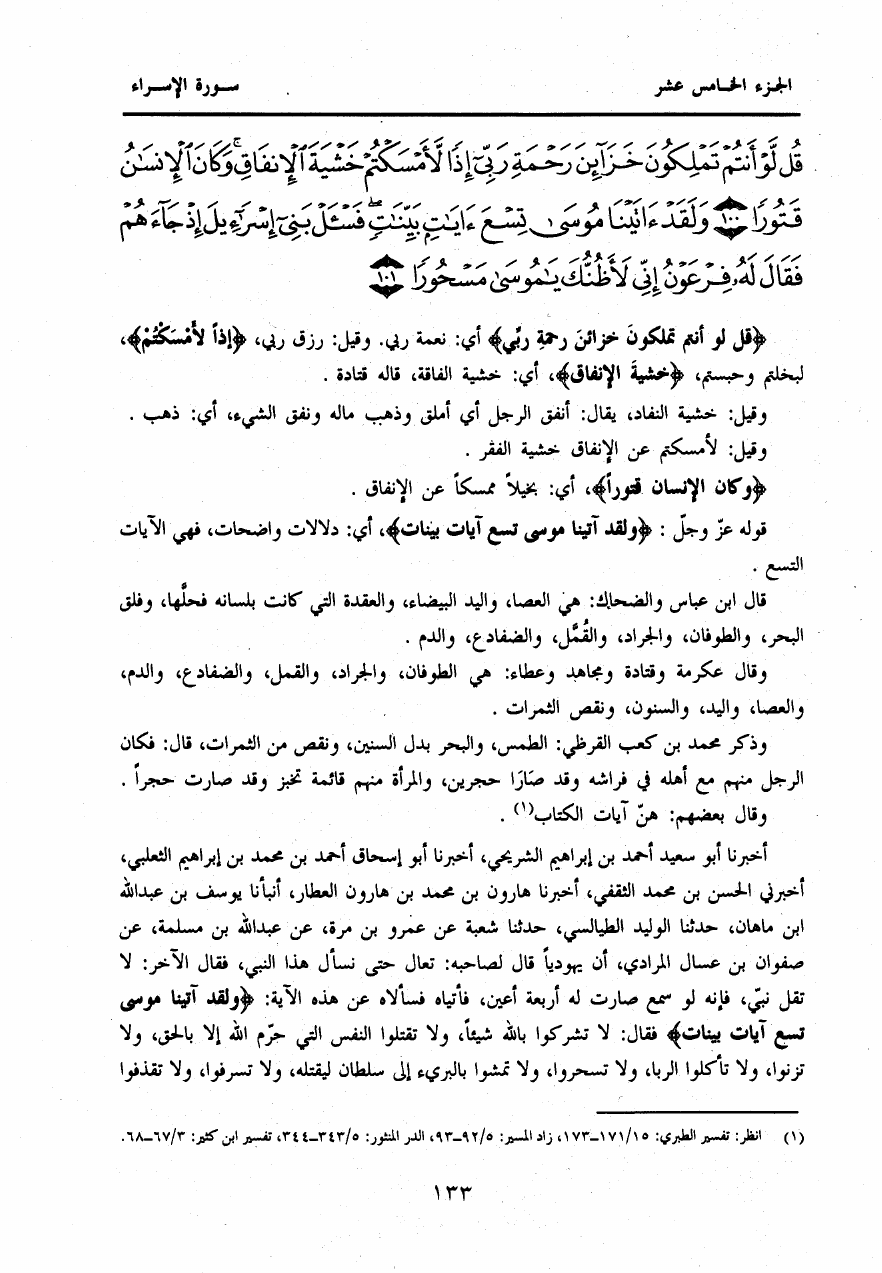 الجزء الخامس عشر سورة الإسراء
قُل لَّوْ أَنتُمْ تَمْلِكُونَ خَزَآئِنَ رَحْمَةِ رَبِّىٓ إِذًا لَّأَمْسَكْتُمْ خَشْيَةَ ٱلْإِنفَاقِ ۚ وَكَانَ ٱلْإِنسَـٰنُ
قَتُورًا ١٠٠ وَلَقَدْ ءَاتَيْنَا مُوسَىٰ تِسْعَ ءَايَـٰتٍۭ بَيِّنَـٰتٍ ۖ فَسْـَٔلْ بَنِىٓ إِسْرَٰٓءِيلَ إِذْ جَآءَهُمْ
فَقَالَ لَهُۥ فِرْعَوْنُ إِنِّى لَأَظُنُّكَ يَـٰمُوسَىٰ مَسْحُورًا ١٠١
﴿قل لو أنتم تملكونَ خزائنَ رحمةِ ربِّي﴾ أي: نعمة ربي. وقيل: رزق ربي، ﴿إذاً لأَمْسَكْتُمْ﴾،
لبخلتم وحبستم، ﴿خشيةَ الإنفاق﴾، أي: خشية الفاقة، قاله قتادة .
وقيل: خشية النفاد، يقال: أنفق الرجل أي أملق وذهب ماله ونفق الشيء، أي: ذهب .
وقيل: لأمسكتم عن الإنفاق خشية الفقر .
﴿وكان الإنسان قتوراً﴾، أي: بخيلاً ممسكاً عن الإنفاق .
قوله عزّ وجلّ : ﴿ولقد آتينا موسى تسع آيات بينات﴾، أي: دلالات واضحات، فهي الآيات
التسع .
قال ابن عباس والضحاك: هي العصا، واليد البيضاء، والعقدة التي كانت بلسانه فحلَّها، وفلق
البحر، والطوفان، والجراد، والقُمَّل، والضفادع، والدم .
وقال عكرمة وقتادة ومجاهد وعطاء: هي الطوفان، والجراد، والقمل، والضفادع، والدم،
والعصا، واليد، والسنون، ونقص الثمرات .
وذكر محمد بن كعب القرظي: الطمس، والبحر بدل السنين، ونقص من الثمرات، قال: فكان
الرجل منهم مع أهله في فراشه وقد صَارَا حجرين، والمرأة منهم قائمة تخبز وقد صارت حجراً .
وقال بعضهم: هنّ آيات الكتاب(١) .
أخبرنا أبو سعيد أحمد بن إبراهيم الشريحي، أخبرنا أبو إسحاق أحمد بن محمد بن إبراهيم الثعلبي،
أخبرني الحسن بن محمد الثقفي، أخبرنا هارون بن محمد بن هارون العطار، أنبأنا يوسف بن عبدالله
ابن ماهان، حدثنا الوليد الطيالسي، حدثنا شعبة عن عمرو بن مرة، عن عبدالله بن مسلمة، عن
صفوان بن عسال المرادي، أن يهودياً قال لصاحبه: تعال حتى نسأل هذا النبي، فقال الآخر: لا
تقل نبيّ، فإنه لو سمع صارت له أربعة أعين، فأتياه فسألاه عن هذه الآية: ﴿ولقد آتينا موسى
تسع آيات بينات﴾ فقال: لا تشركوا بالله شيئاً، ولا تقتلوا النفس التي حرّم الله إلا بالحق، ولا
تزنوا، ولا تأكلوا الربا، ولا تسحروا، ولا تمشوا بالبريء إلى سلطان ليقتله، ولا تسرفوا، ولا تقذفوا
(١) انظر: تفسير الطبري: ١٧١/١٥–١٧٣، زاد المسير: ٩٢/٥–٩٣، الدر المنثور: ٣٤٣/٥–٣٤٤، تفسير ابن كثير: ٦٧/٣–٦٨.
١٣٣